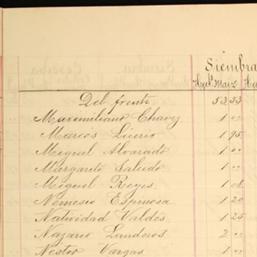 Siembra
Maiz
Del frente 52 53
Maximiliano Chavez 1 "
Marcos Licerio 1 95
Miguel Alvarado 1 "
Margarito Salcido 1 "
Miguel Reyes 1 08
Nemesio Espinosa 1 20
Natividad Valdés 1 25
Nazario Landeros 2 "
Nestor Vargas 1 "